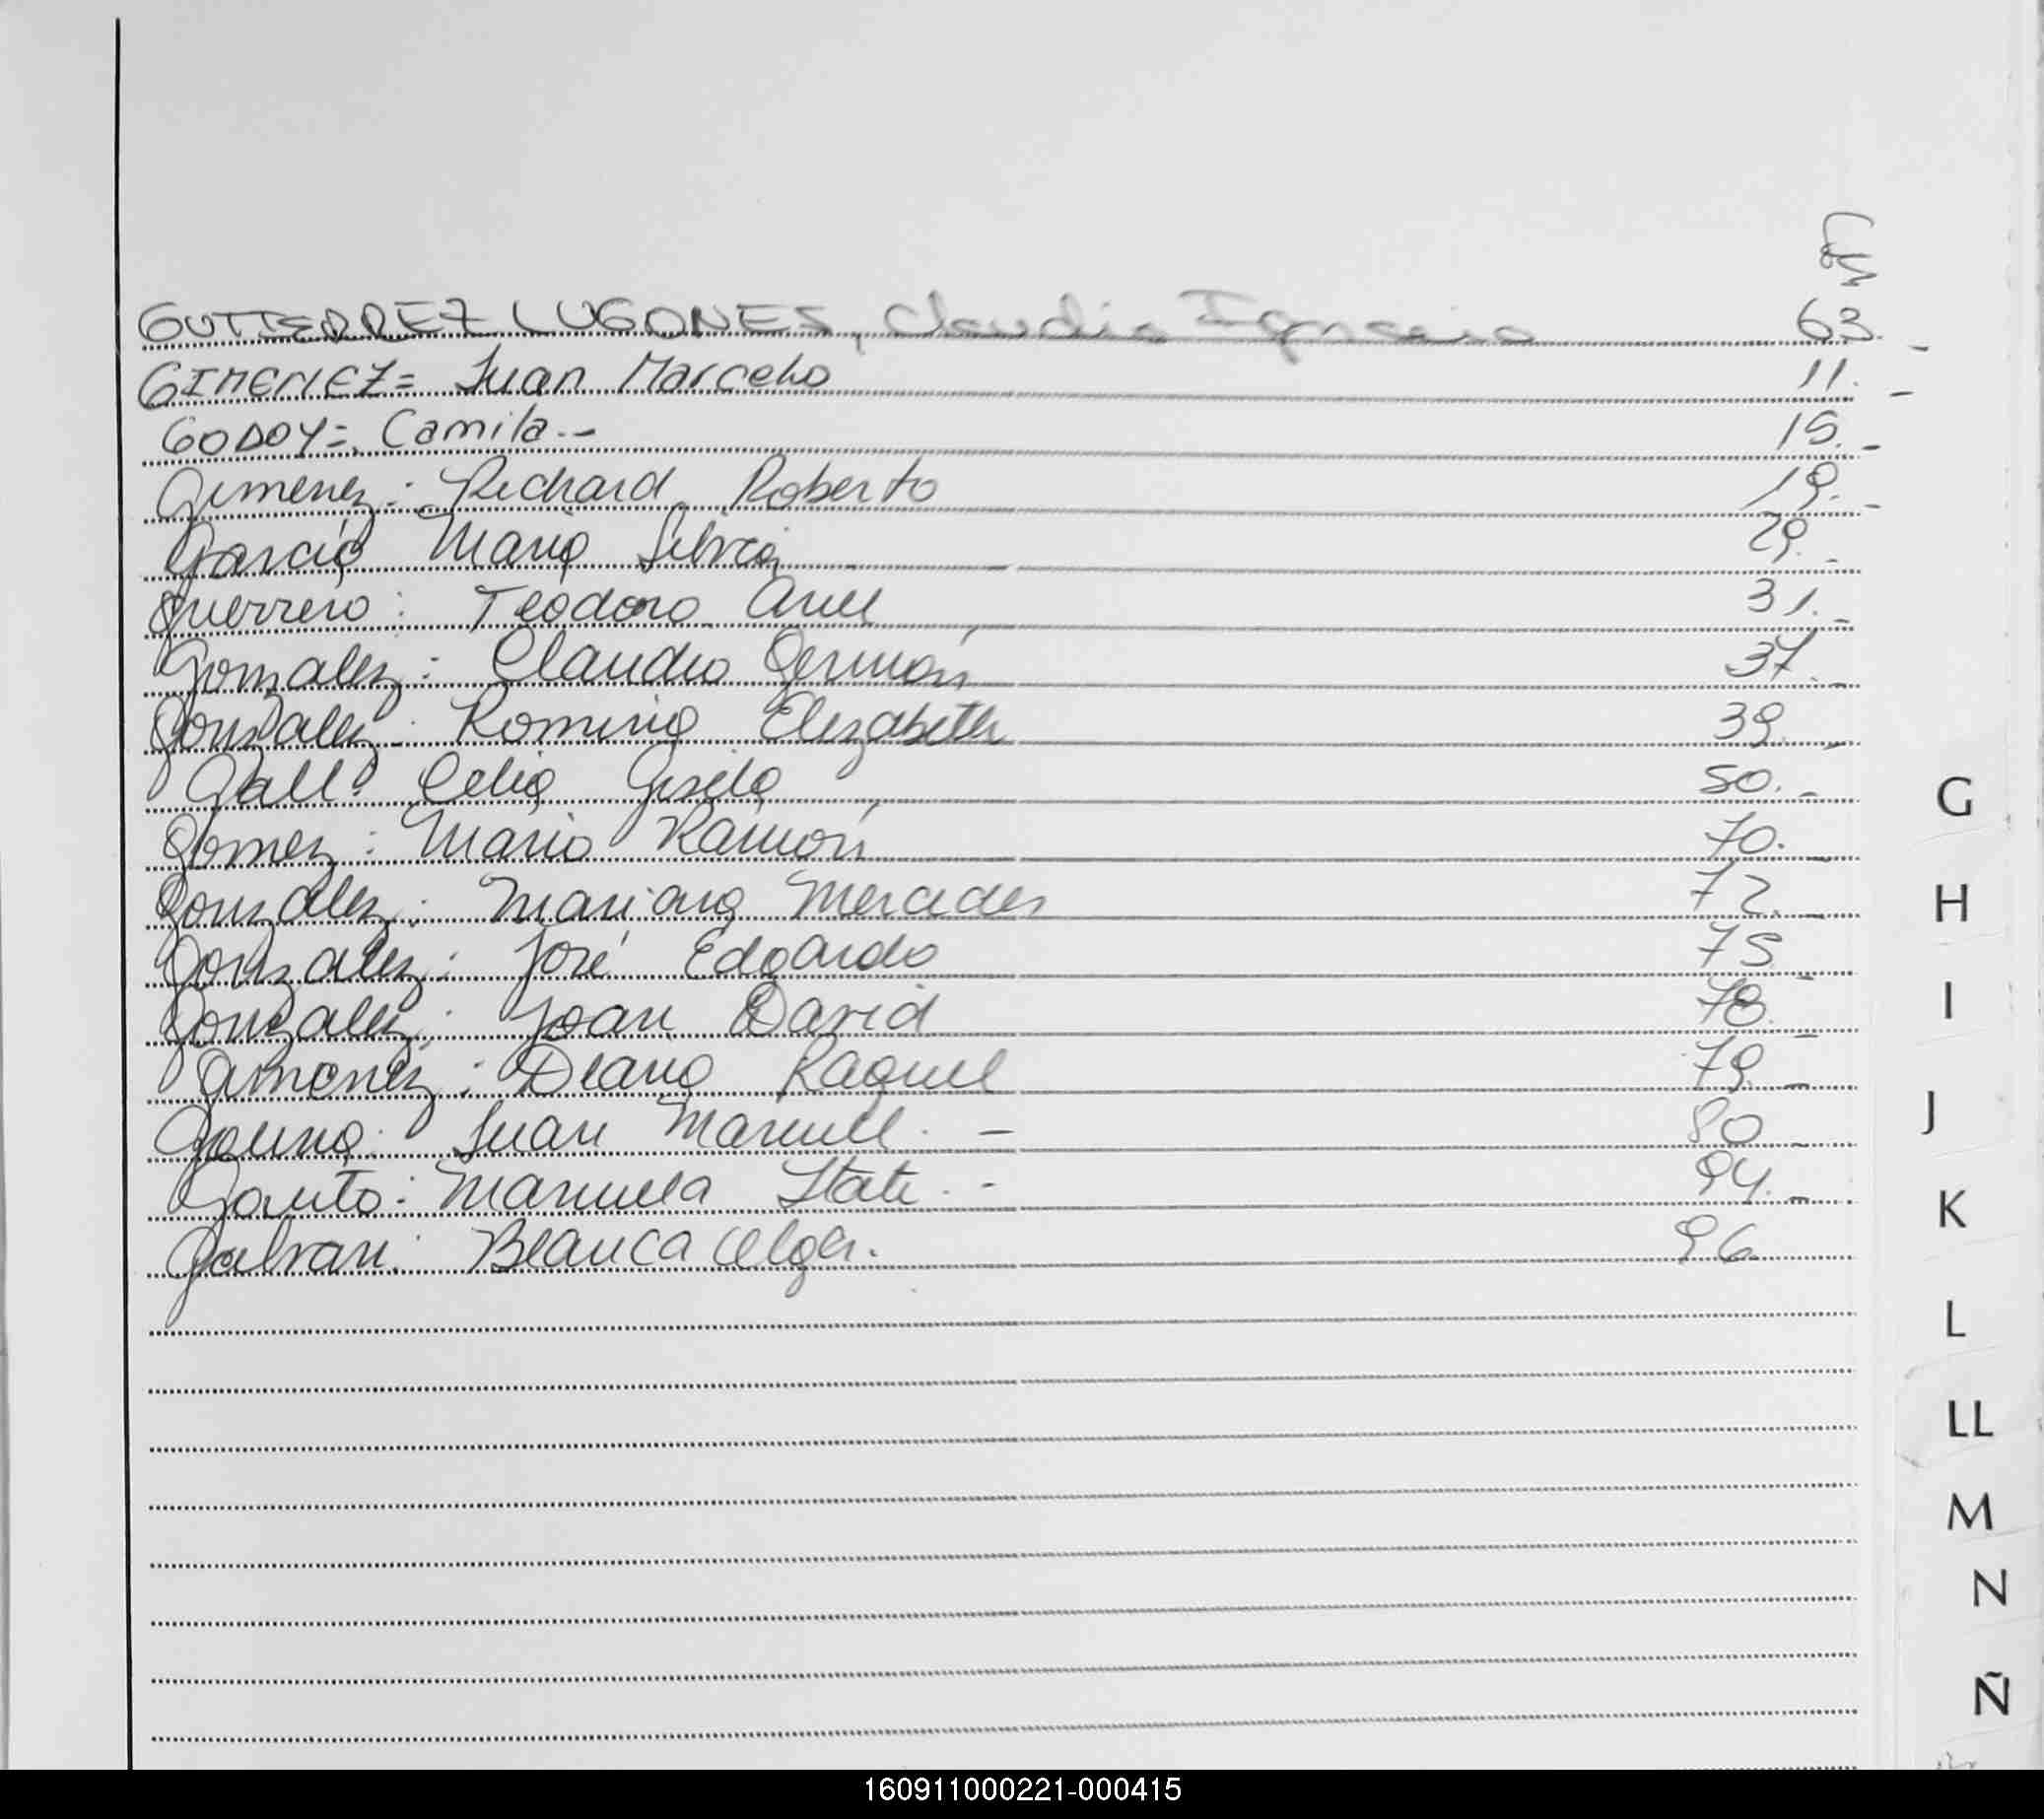 GUTIERREZ LUGONES, Claudio Ignacio 63.-
GIMENEZ= Juan Marcelo 11.-
GODOY=. Camila.- 15.-
Gimenez: Richard Roberto 19.-
Garcia Maria Silvia 29.-
Guerrero: Teodoro Ariel 31.-
Gonzalez: Claudio Germán 37.-
Gonzalez: Romina Elizabeth 39.-
Gall: Celia Gisela 50.-
Gomez: Mario Ramón 70.-
Gonzalez: Mariana Mercedes 72.-
Gonzalez: José Edgardo 75.-
Gonzalez: Joan David 78.-
Gimenez: Diana Raquel 79.-
Juan Manuel.- 80.-
Gauto: Manuela Itati.- 94.-
Galvan: Blanca Olga. 96.
G
H
I
J
K
L
LL
M
N
Ñ
160911000221-000415